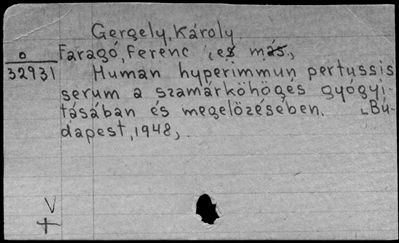 Gergely, Károly.
o Faragó, Ferenc, és más.,
32931 Human hyperimmun pertussis
serum a szamárköhögés gyógyi-
tásában és megelőzésében. Bu-
dapest, 1948,
V
+